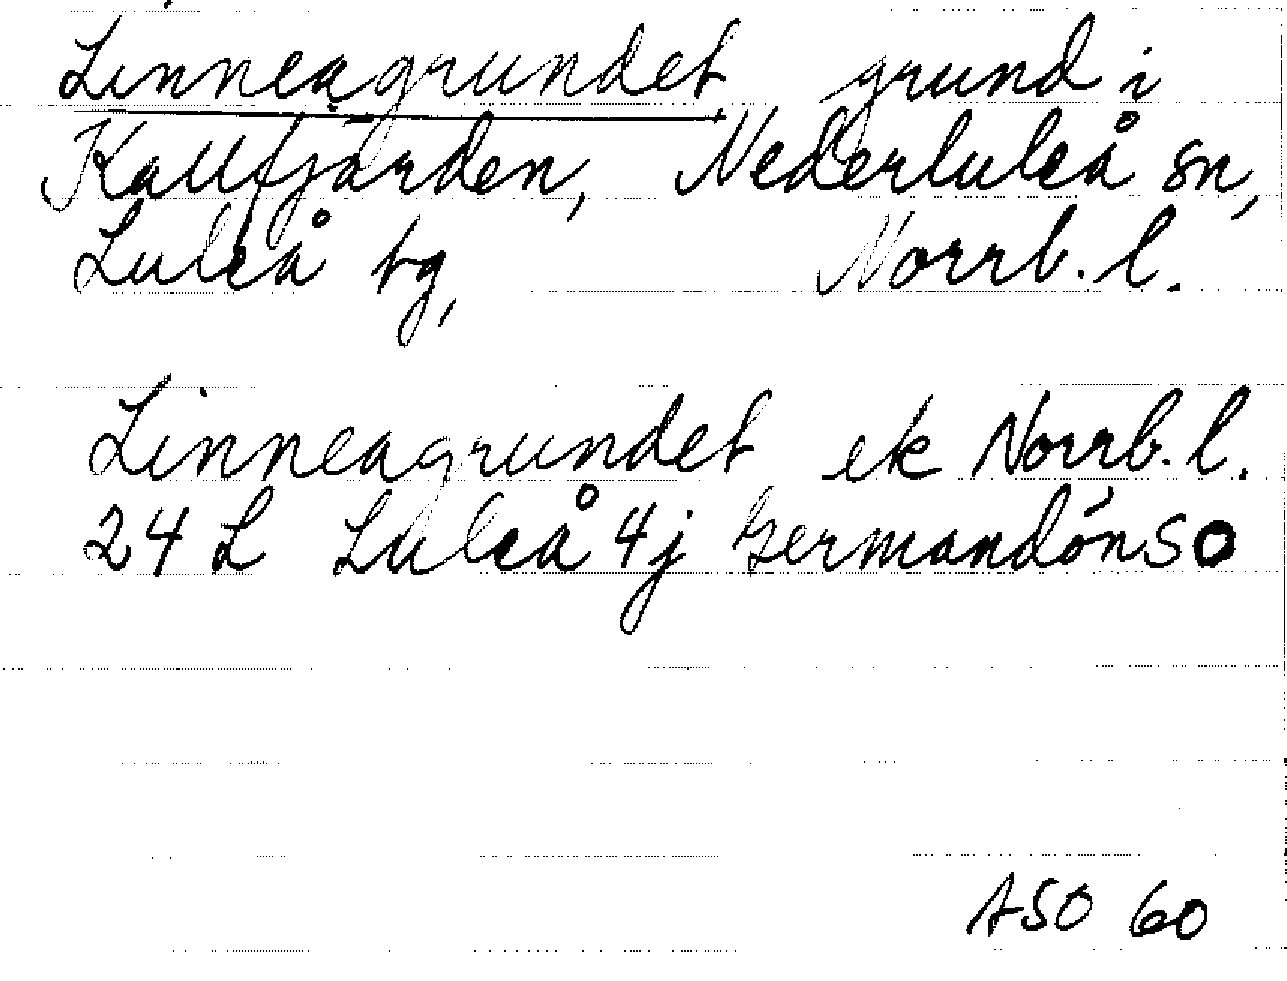 Linneagrundet, grund i
Kallfjärden, Nederluleå sn,
Luleå tg, Norrb. l.
Linneagrundet ek Norrb. l.
24 L Luleå 4j Germandön SO
ASO 60